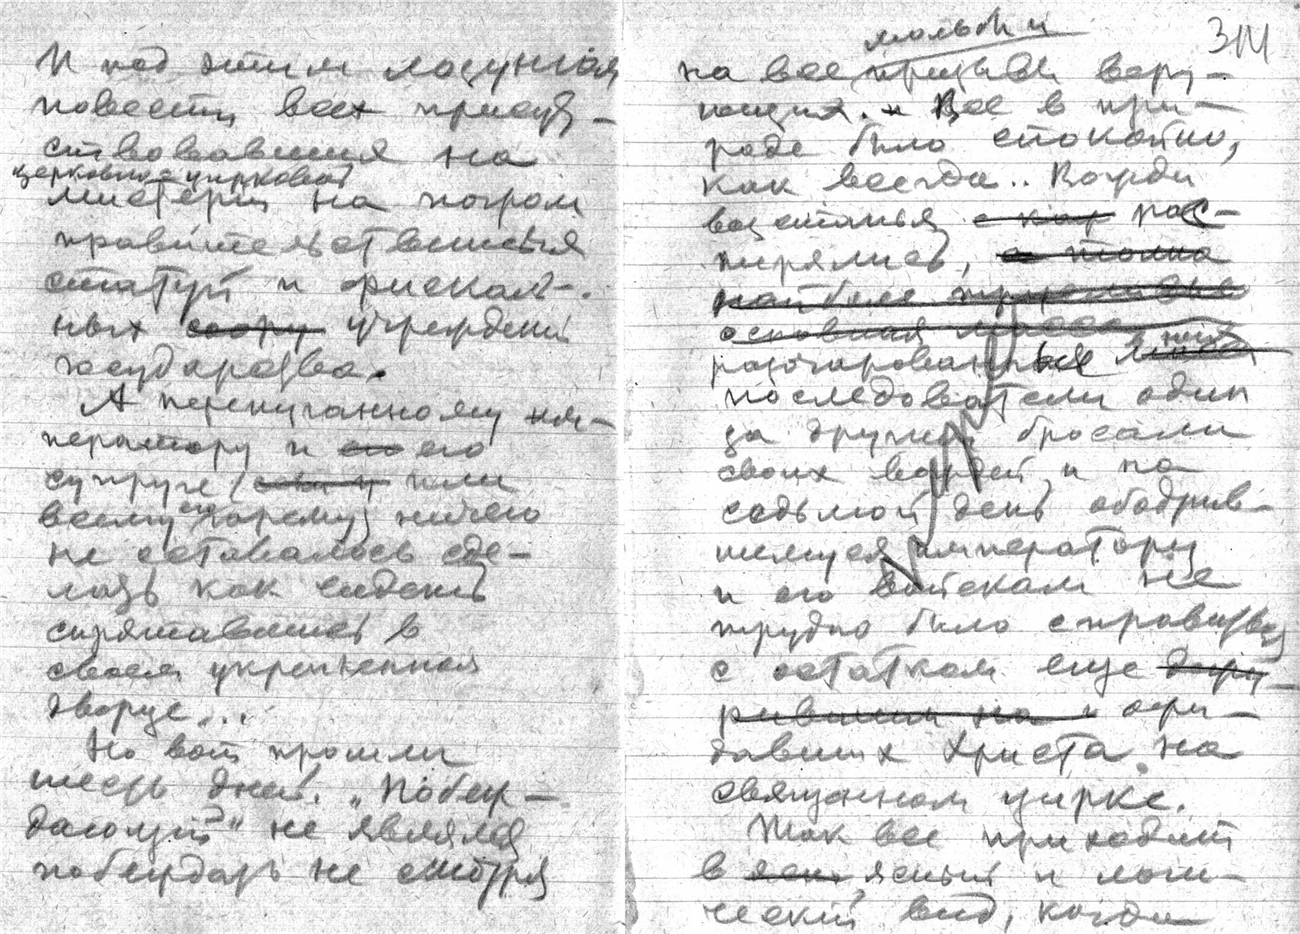 И под этим лозунгом
повести всех присут-
ствовавших на
церковно-цирковой
мистерии на погром
правительственных
статуй и фискаль-
ных учреждений
государства.
А перепуганному им-
ператору и его
супруге или
всему его гарему ничего
не оставалось сде-
лать как сидеть
спрятавшись в
своем укрепленном
дворце...
Но вот прошли
шесть дней. „Побеж-
дающий" не являлся
побеждать не смотря
311
мольбы и
на все призывы веру-
ющих. Все в при-
роде было спокойно,
как всегда.. Вожди
восстанья рас-
терялись,
разочарованные их
последователи один
за другим бросали
своих вождей и на
седьмой день ободрив-
шемуся императору
и его войскам не
трудно было справиться
с остатком еще
ожи-
давших Христа на
священном цирке.
Так все приходит
в ясный и логи-
ческий вид, когда